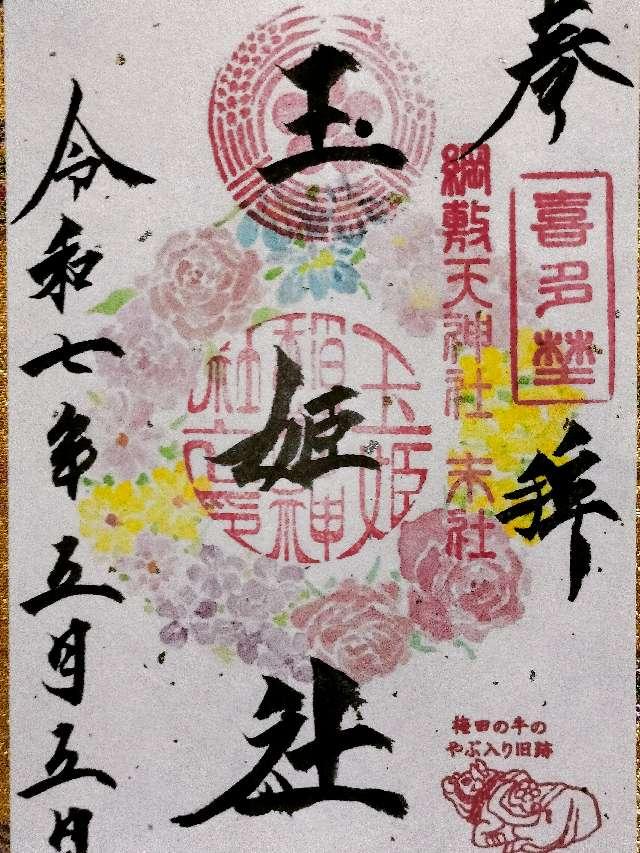 奉拝
喜多埜
綱敷天神社 末社
玉姫社
玉姫
稲荷神
社之印
令和七年五月五日
梅田の牛の
やぶ入り旧跡